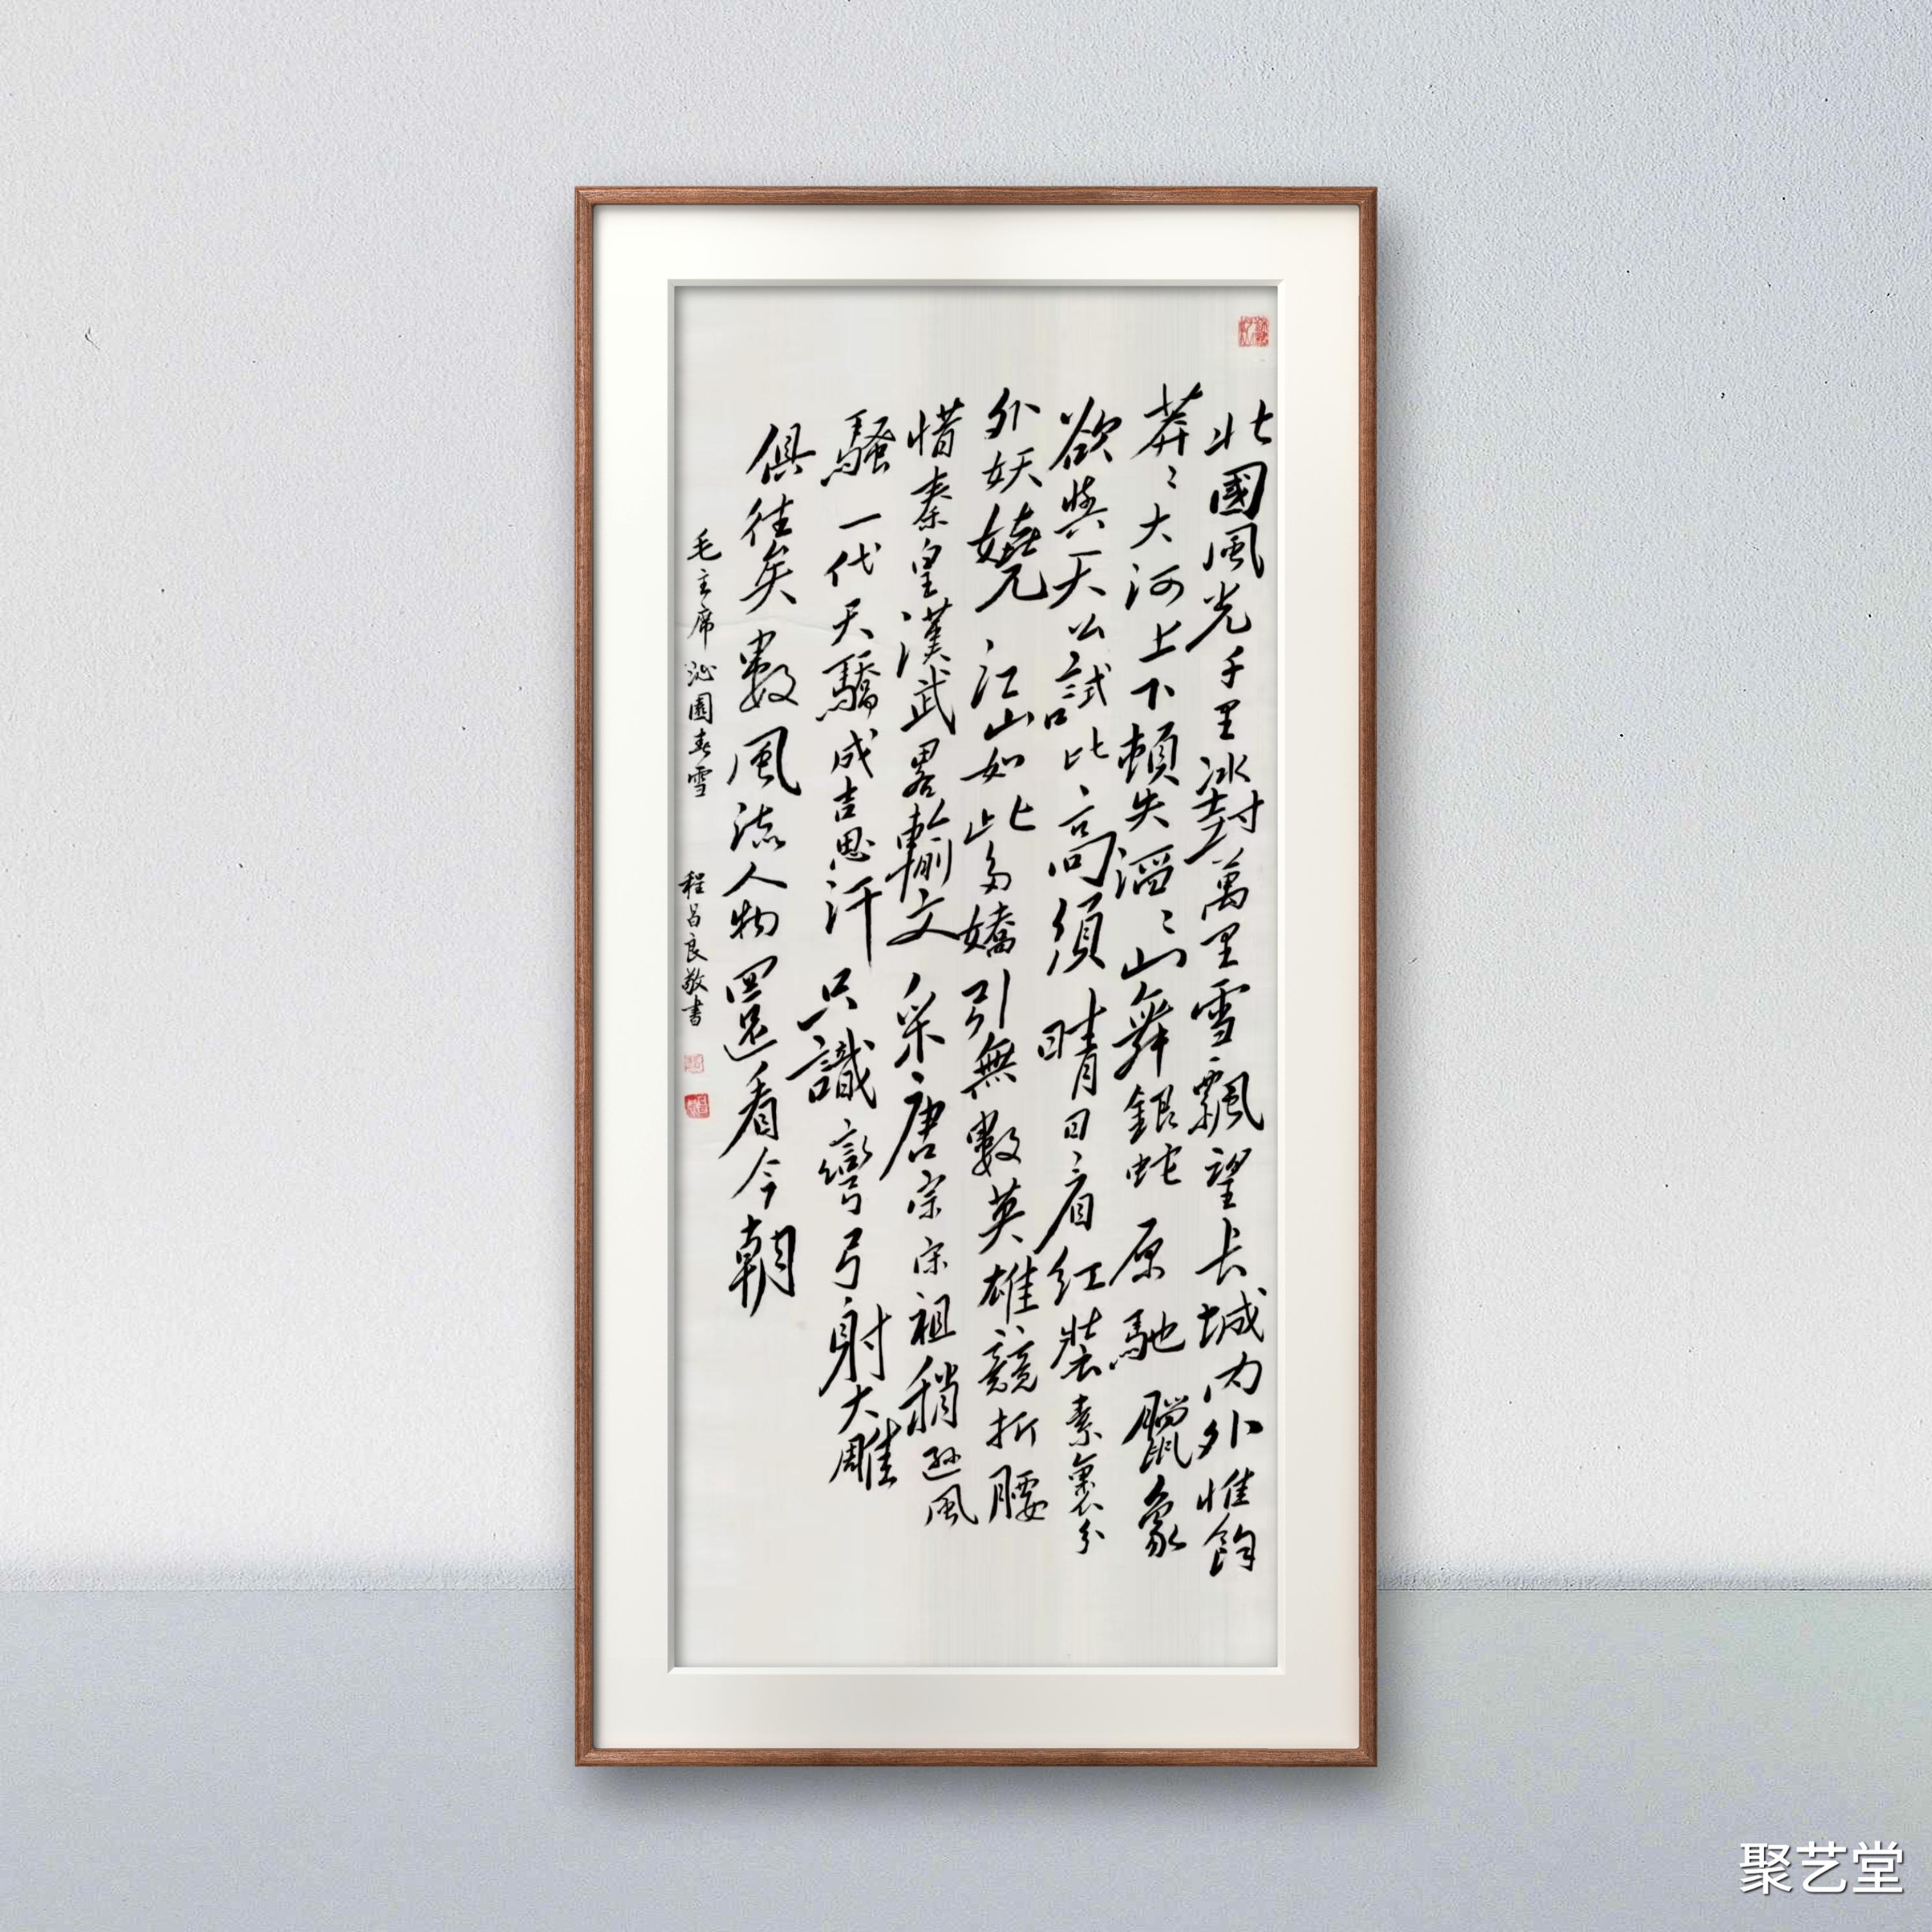 北國風光千里冰封萬里雪飄望長城内外惟餘
莽〻大河上下頓失滔〻山舞銀蛇原馳臘象
欲與天公試比高須晴日看紅裝素裹分
外妖嬈江山如此多嬌引無數英雄競折腰
惜秦皇漢武畧輸文采唐宗宋祖稍遜風
騷一代天驕成吉思汗只識彎弓射大雕
俱往矣數風流人物還看今朝
毛主席沁園春雪 程昌良敬書
聚艺堂